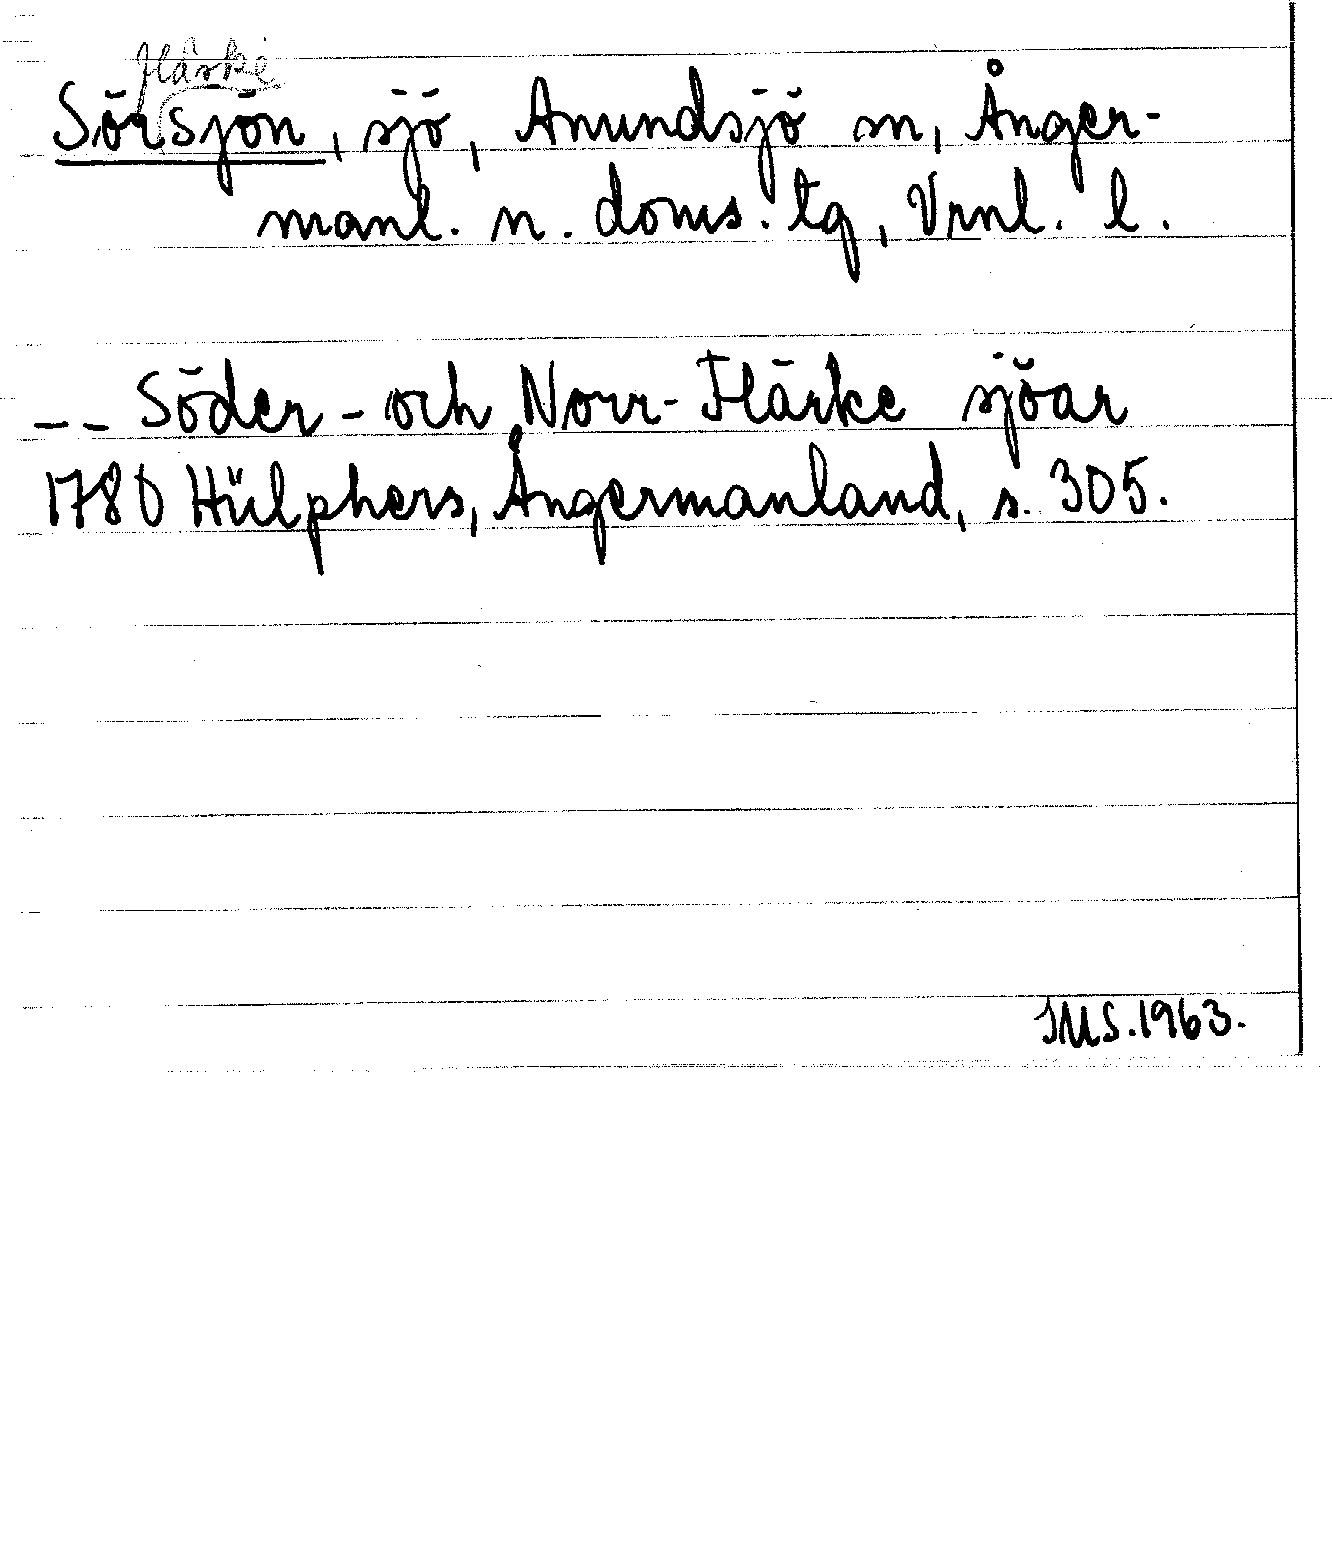 flärke
Sörsjön, sjö, Anundsjö sn, Ånger-
manl. n. doms. tg, Vrnl. l.
-- Söder- och Norr-Flärke sjöar
1780 Hülphers, Ångermanland, s. 305.
IMS. 1963.